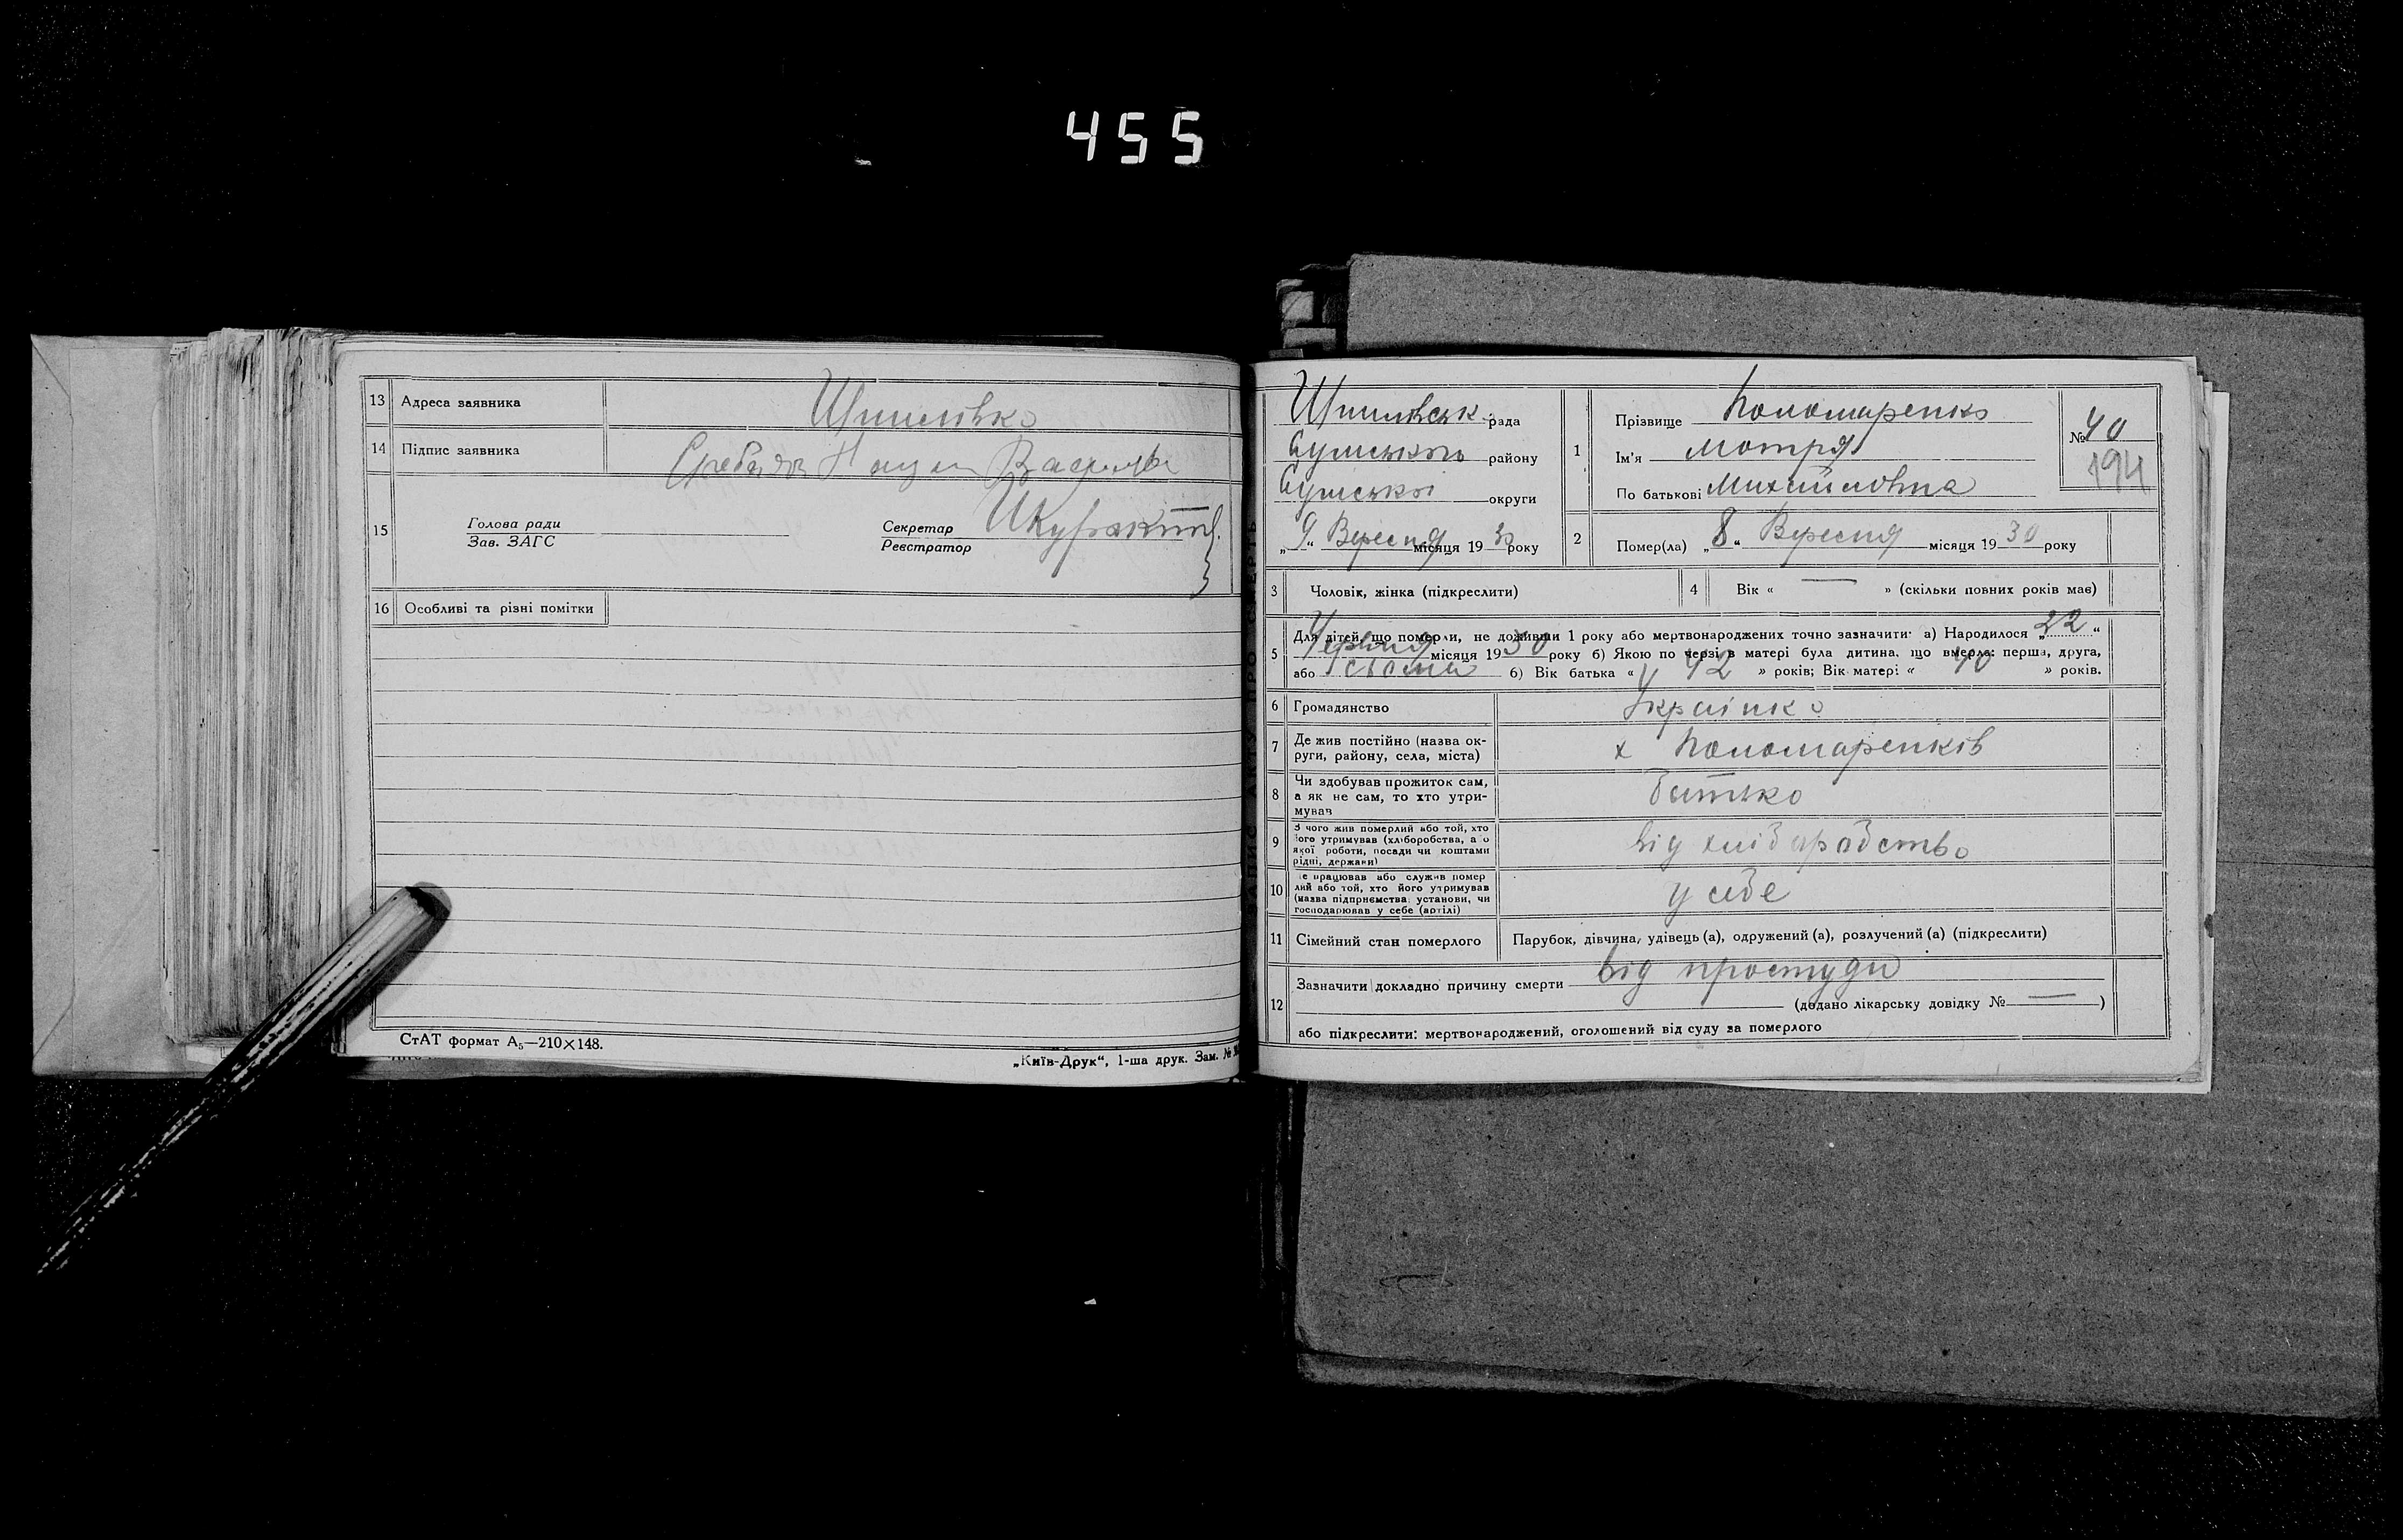 455
13 Адреса заявника Шпилівка
14 Підпис заявника
15 Голова ради
Зав. ЗАГС
Секретар
Реєстратор
16 Особливі та різні помітки
СтАТ формат А5—210×148.
„Київ-Друк“, 1-ша друк. Зам. №
Шпилівськ. рада
Сумського району
Сумської округи
„9“ Вересня місяця 1930 року
1 Прізвище Пономаренко
Ім'я Мотря
По батькові Михайловна
№ 40
194
2 Помер(ла) „8“ Вересня місяця 1930 року
3 Чоловік, жінка (підкреслити)
4 Вік « — » (скільки повних років має)
5 Для дітей, що померли, не доживши 1 року або мертвонароджених точно зазначити: а) Народилося „22“
Червня місяця 1930 року б) Якою по черзі в матері була дитина, що вмерла: перша, друга,
або сьома б) Вік батька « 42 » років; Вік матері « 40 » років.
6 Громадянство Українка
7 Де жив постійно (назва ок-
руги, району, села, міста) х Пономаренків
8 Чи здобував прожиток сам,
а як не сам, то хто утри-
мував батько
9 З чого жив померлий або той, хто
його утримував (хліборобства, або
якої роботи, посади чи коштами
рідні, держави) від хліборобство
10 Де працював або служив помер
лий або той, хто його утримував
(назва підприємства, установи, чи
господарював у себе (артілі) у себе
11 Сімейний стан померлого Парубок, дівчина, удівець (а), одружений (а), розлучений (а) (підкреслити)
12 Зазначити докладно причину смерти від простуди
(додано лікарську довідку № — )
або підкреслити: мертвонароджений, оголошений від суду за померлого